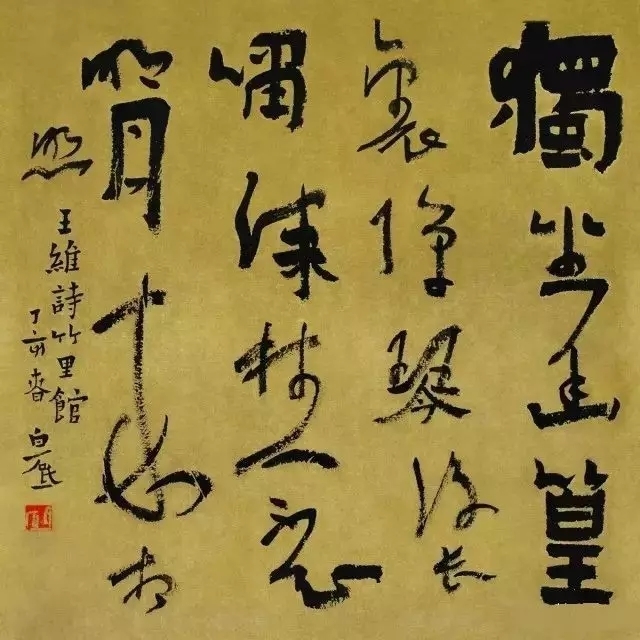 獨坐幽篁
裏彈琴復長
嘯深林人不知
明月來相
照
王維詩竹里館
丁亥春 白砥